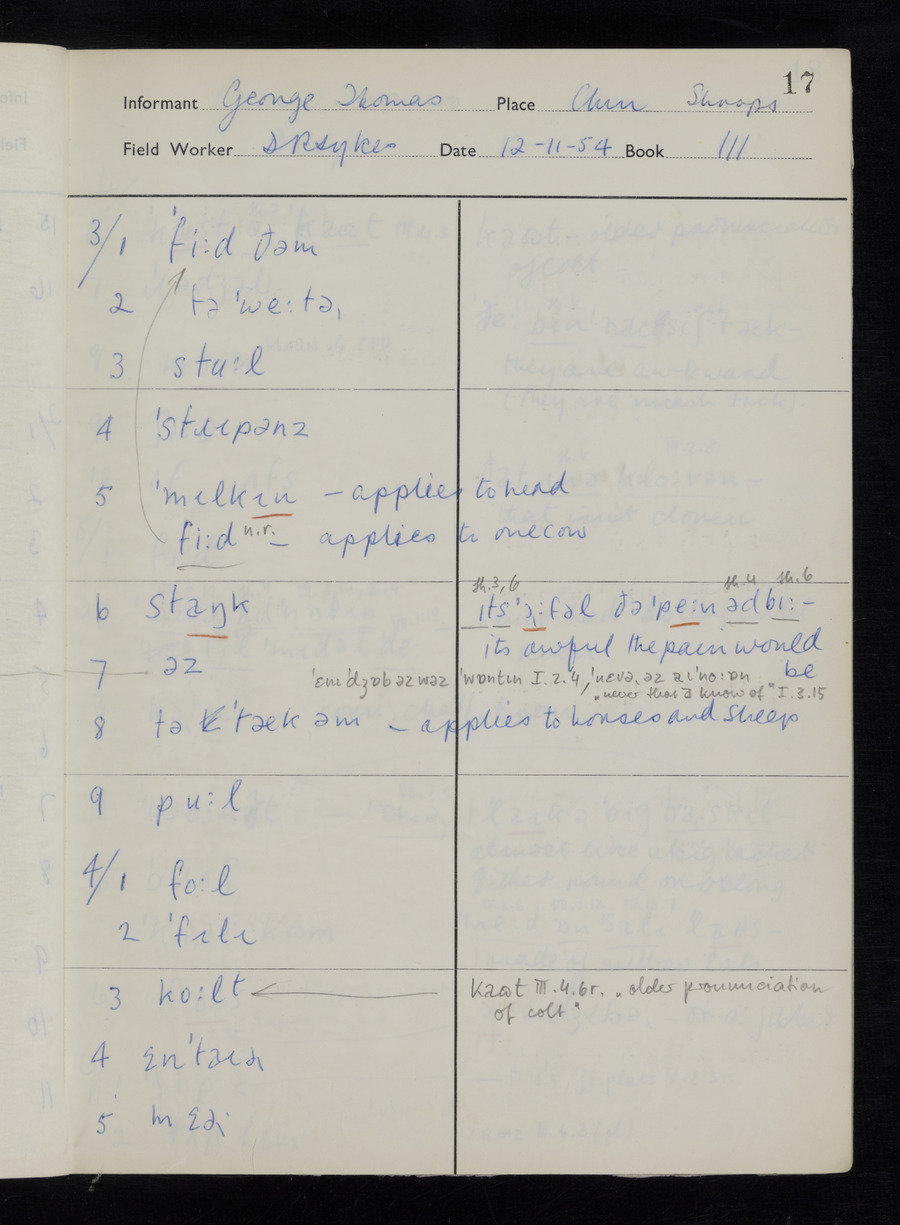 17
Informant George Thomas Place Clun Shrops
Field Worker D R Sykes Date 12-11-54 Book III
3/1 ˈfiːd ðəm
2 tə ˈweːtəɹ
3 stuːl
4 ˈstɪɪpənz
5 ˈmɪlkɪn – applies to head
fiːd n.r. – applies to one cow
th.3,6 th.4 th.6
6 staŋk ɪts ˈɔːfəl ðə ˈpeːn əd bɪː –
its awful the pain would
be
7 əz ˈɛnɪ dʒɒb əz wəz ˈwɒntɪn I.2.4, ˈnɛvəɹ əz aɪ ˈnoːən
„never that I know of" I.3.15
8 tə ˈtæk əm – applies to horses and sheep
9 puːl
4/1 foːl
2 ˈfɪlɪ
3 koːlt kaʊt III.4.6r. „older pronunciation
of colt"
4 ɛnˈtaɪəɹ
5 mɛəɹ